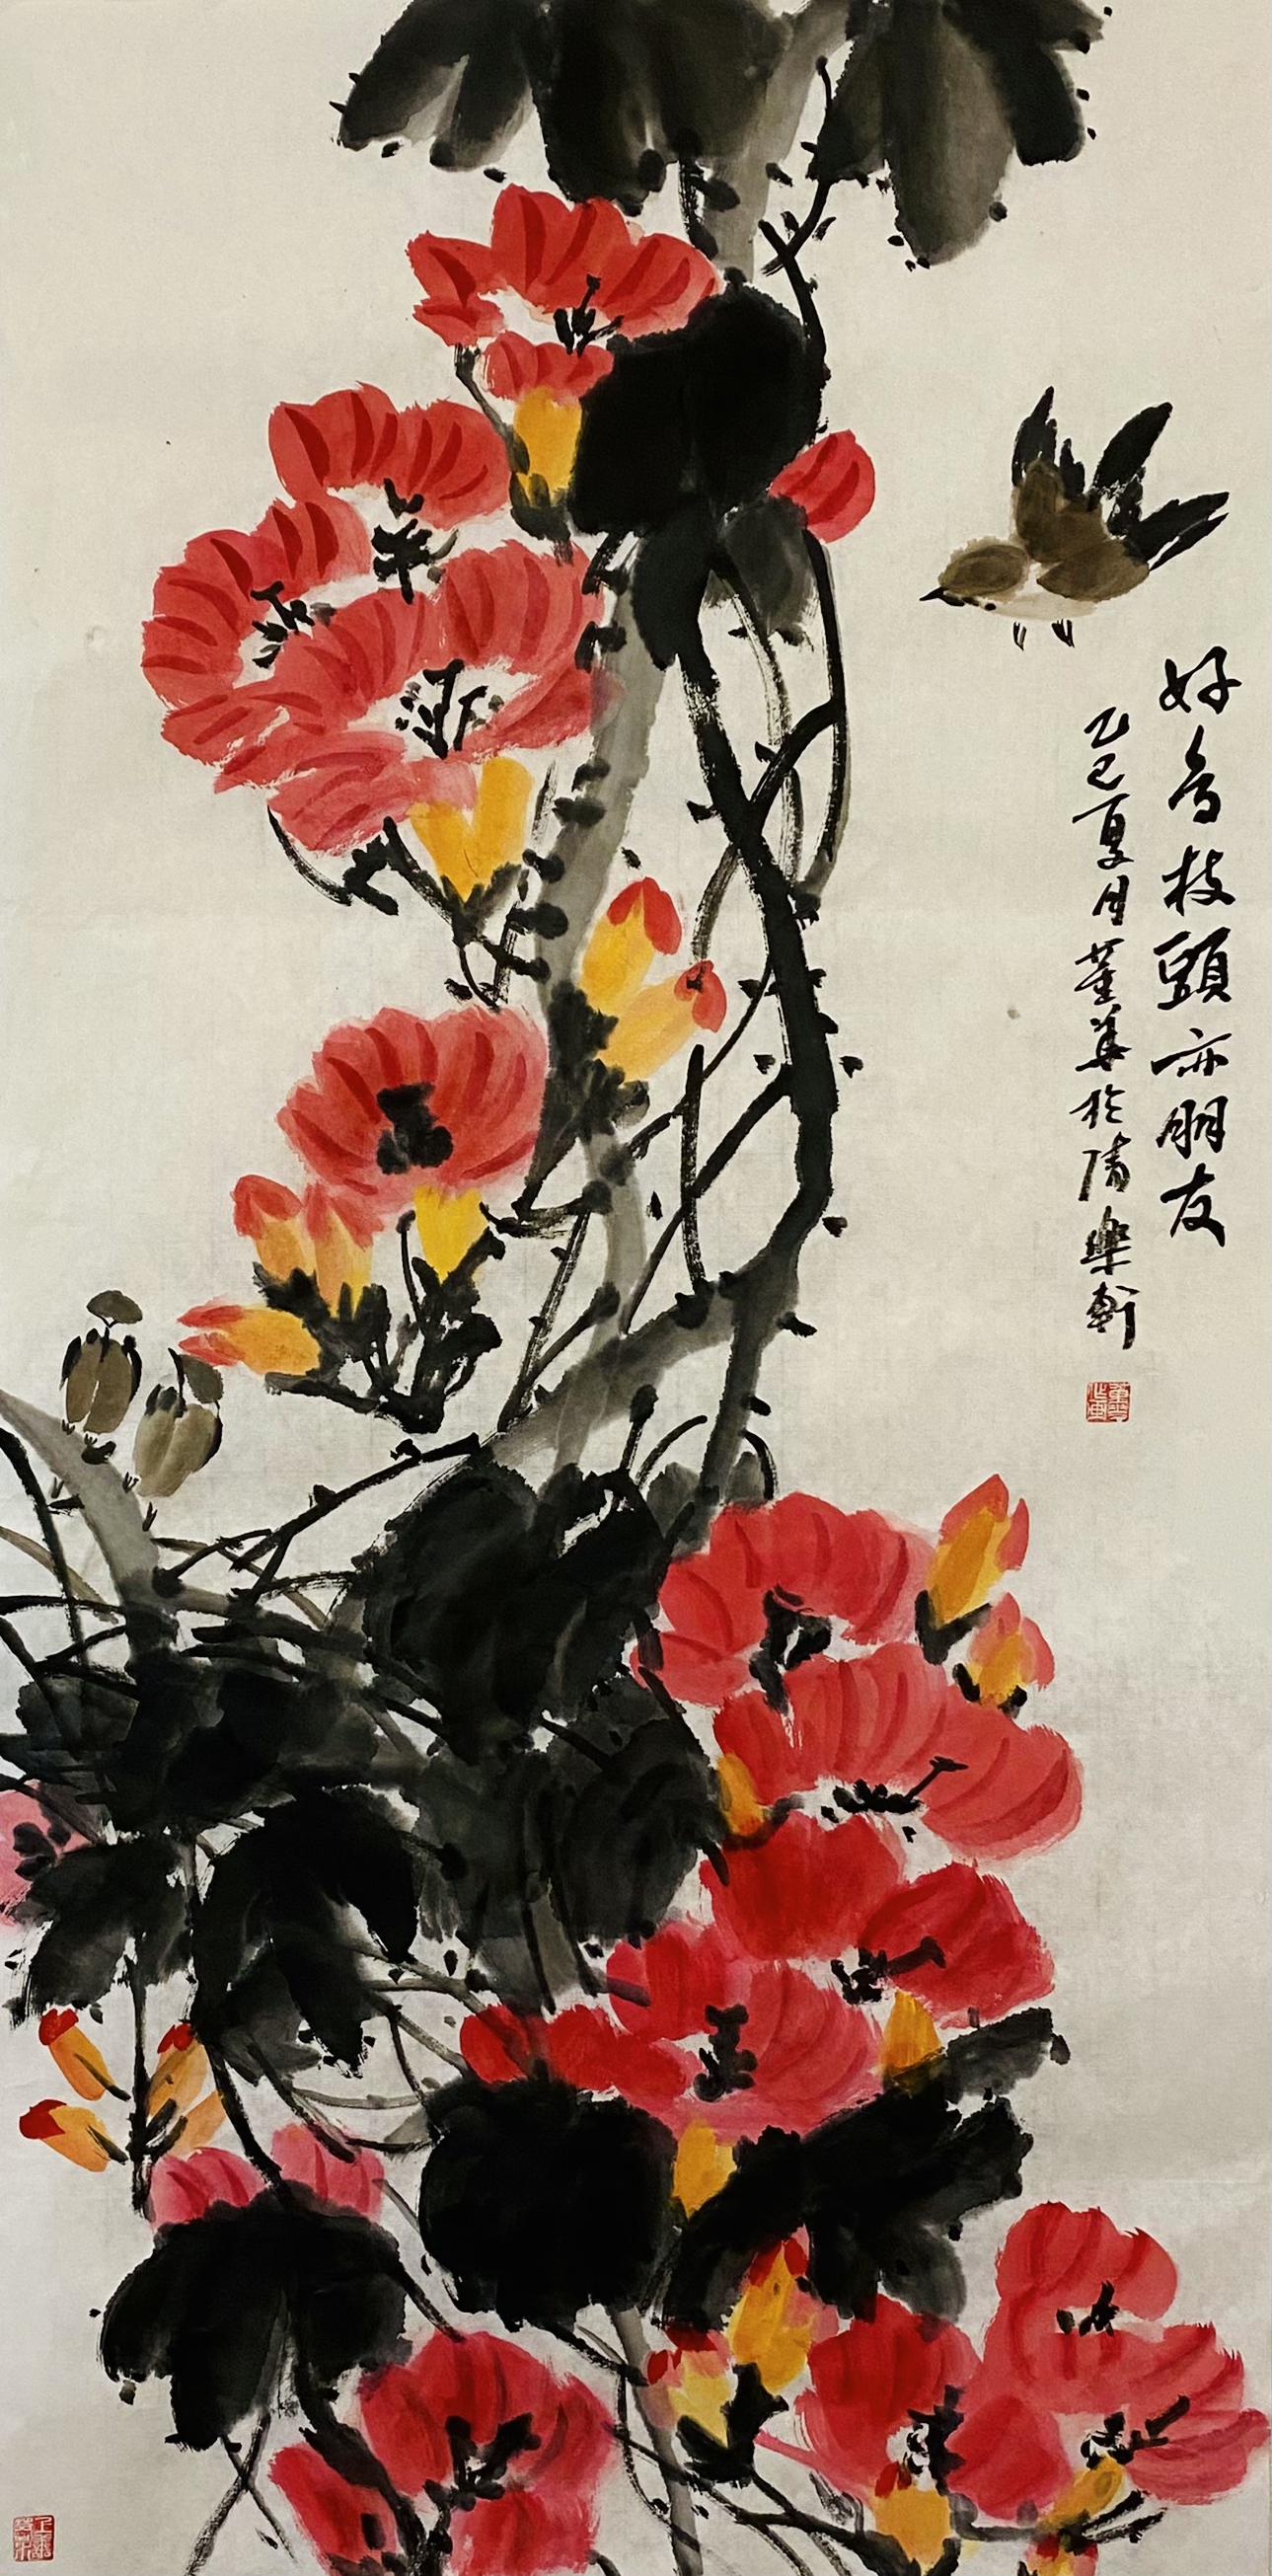 好鳥枝頭亦朋友
乙巳夏月董華於清樂軒